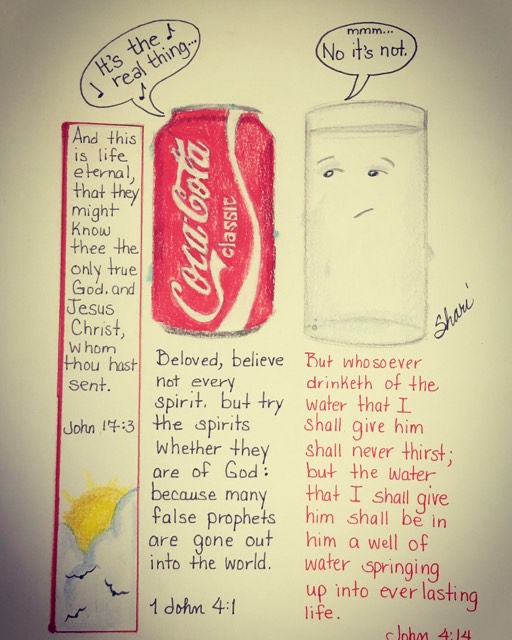 It's the
real thing...
mmm...
No it's not.
And this
is life
eternal,
that they
might
Know
thee the
only true
God, and
Jesus
Christ,
whom
thou hast
sent.
John 17:3
Coca-Cola
classic
Shari
Beloved, believe
not every
spirit. but try
the spirits
whether they
are of God:
because many
false prophets
are gone out
into the world.
1 John 4:1
But whosoever
drinketh of the
water that I
shall give him
shall never thirst;
but the water
that I shall give
him shall be in
him a well of
water springing
up into everlasting
life.
John 4:14